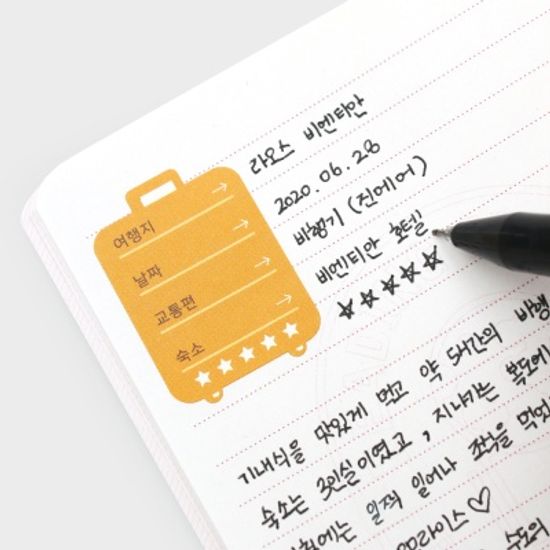 여행지 → 라오스 비엔티안
날짜 → 2020.06.28
교통편 → 비행기 (진에어)
숙소 → 비엔티안 호텔
★★★★★ ☆☆☆☆☆
기내식을 맛있게 먹고 약 5시간의 비행
숙소는 3인실이였고, 지나가는 복도에
에는 일찍 일어나 조식을 먹었
라이스♡
숙도의